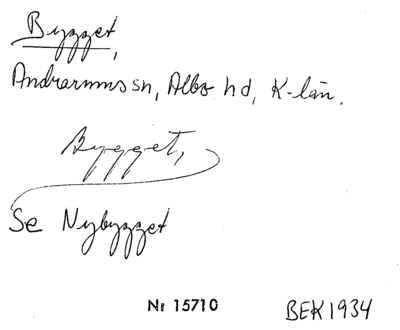 Bygget,
Andrarums sn, Albo hd, K-län.
Bygget,
Se Nybygget
Nr 15710 BEK 1934